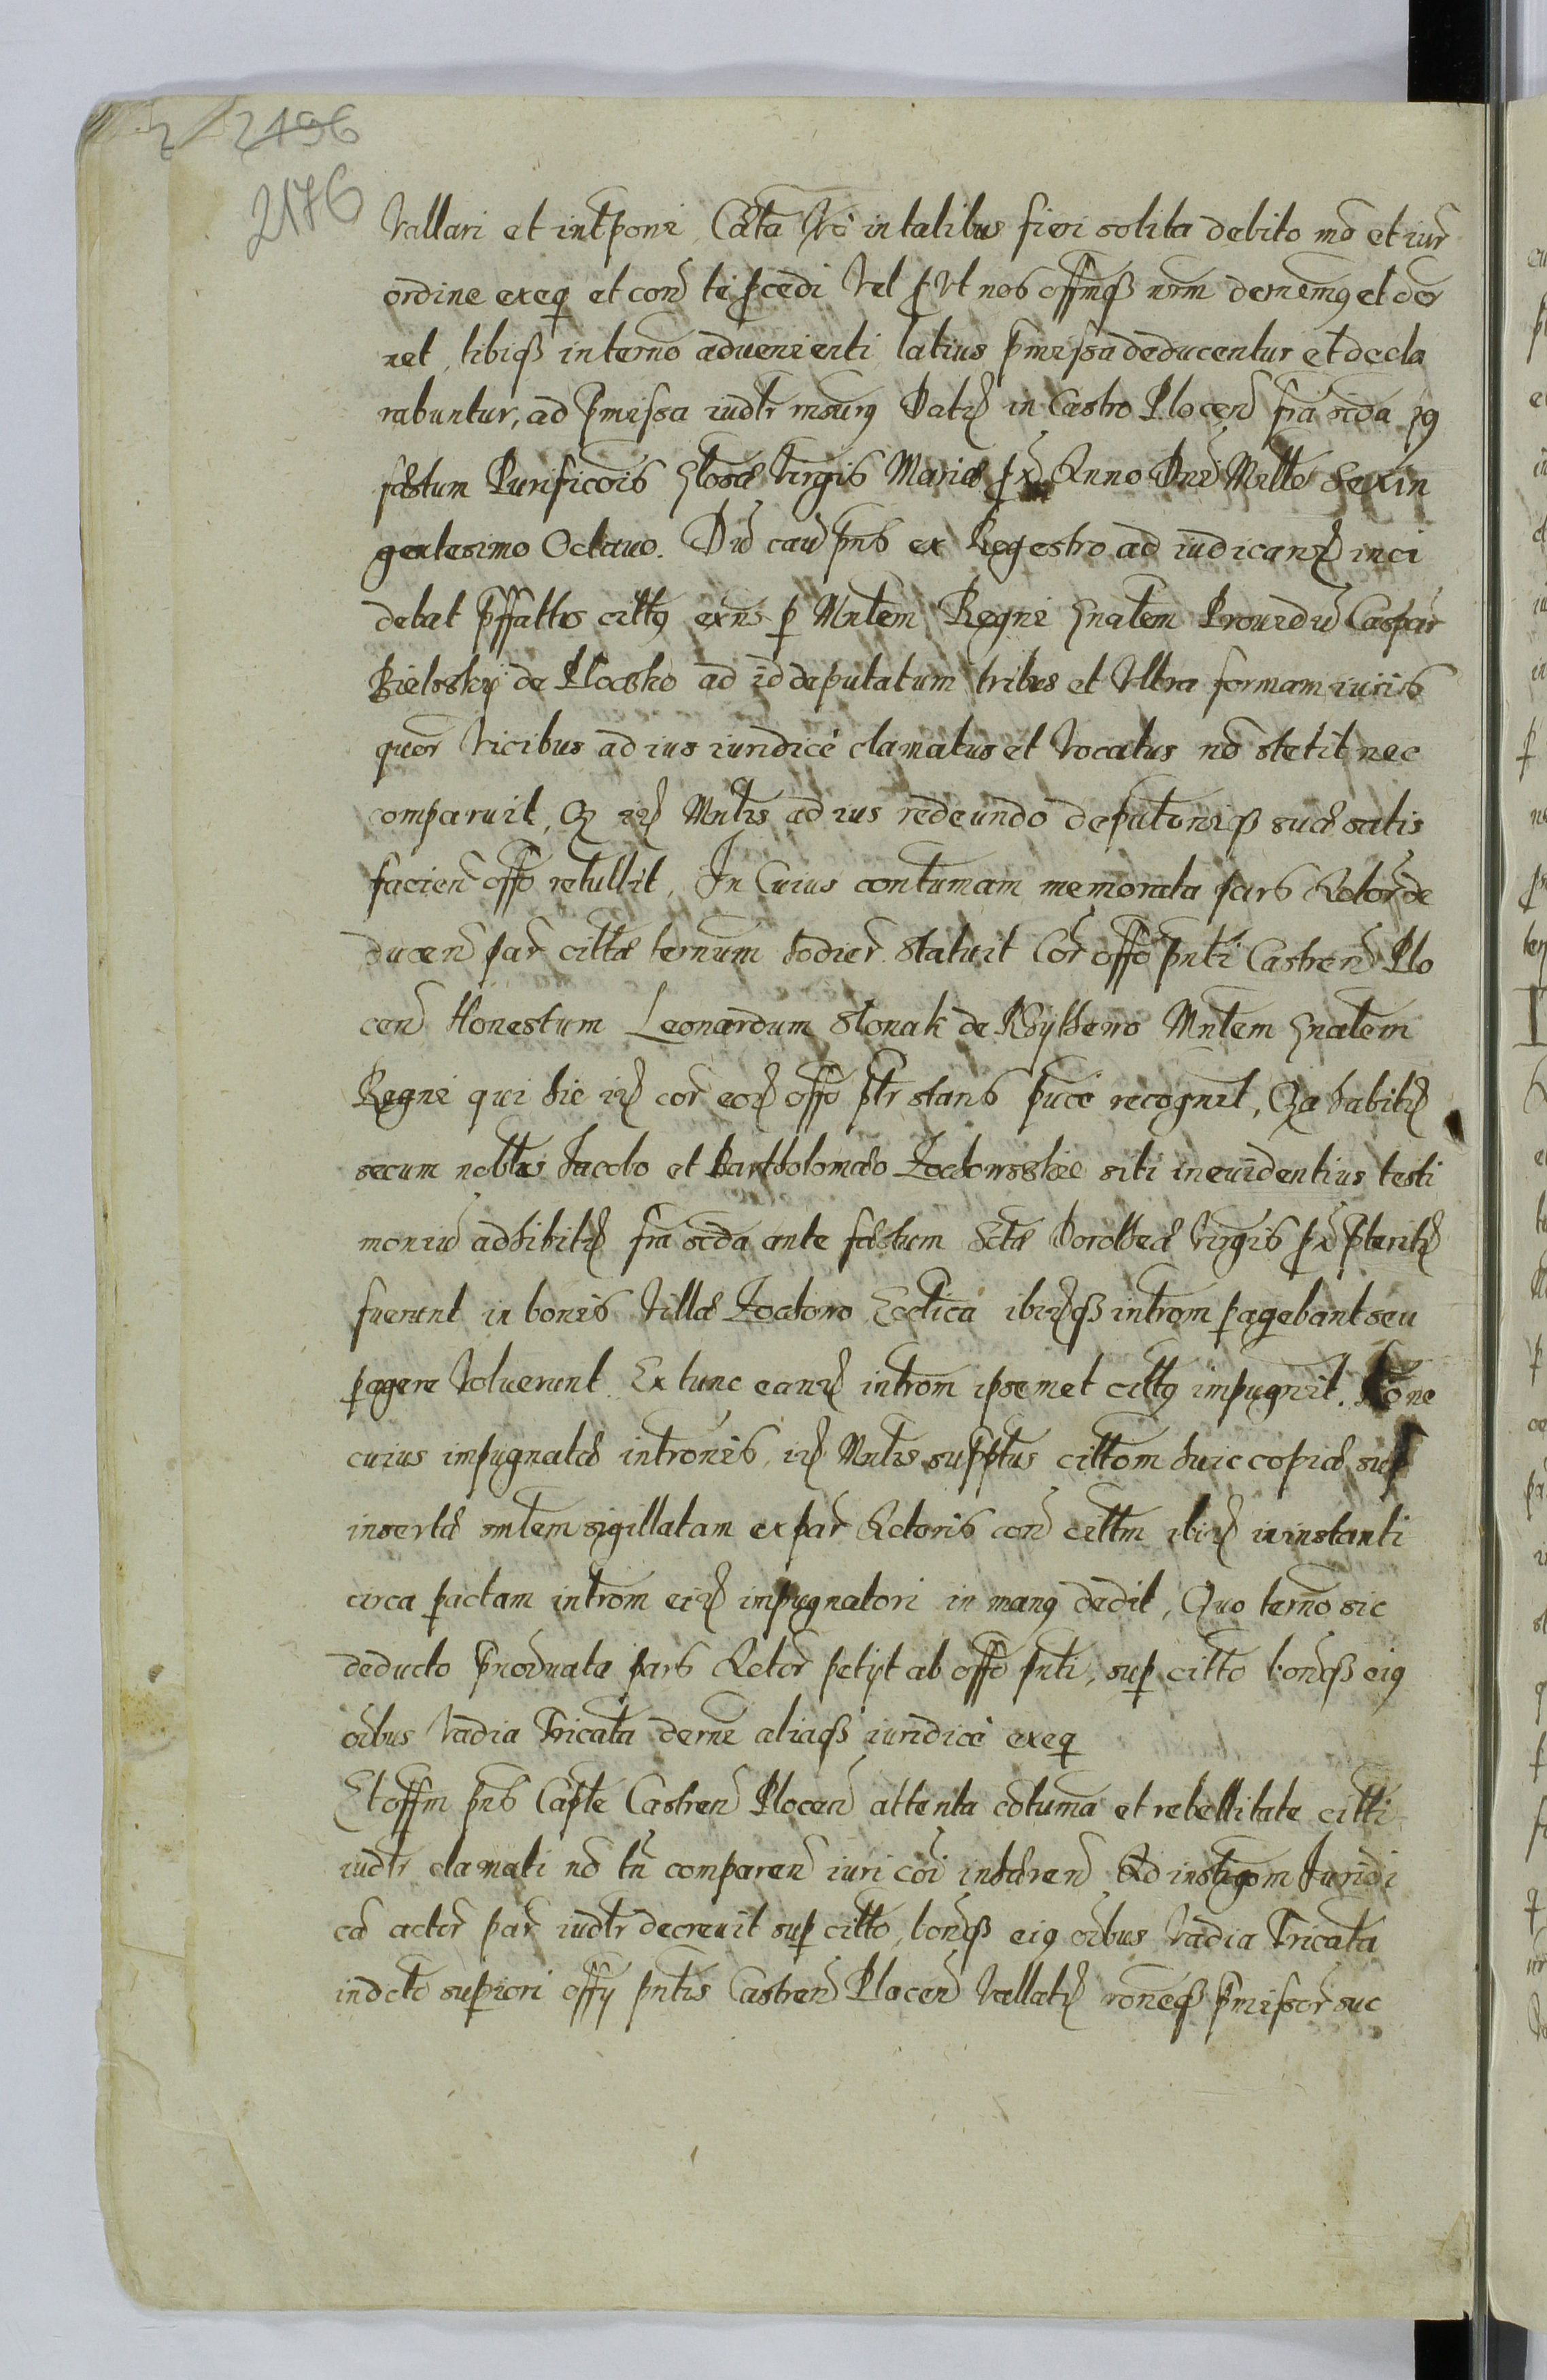 2196
2176
Vallari et intponi, Cæta Vo in talibus fieri solita debito mo et iur
ordine exeq et con te pcedi Vel p Vt nos offmqß nrm decnemg et decr
net, tibiqß in terno advenienti latius pmissa deducentur et decla
rabuntur, ad pmissa iudtr rnsurg Datz in Castro Plocen fria scda pg
fæstum Purificois Glosæ Virgis Mariæ px Anno Dni Mille Sexin
gentesimo Octauo. Dū cau pns ex Regestro ad iudicanz inci
debat pffatto citty exns p Mntem Regni Gnalem Prouidū Caspar
Bielsky de Plocsko ad id deputatum tribus et Vltra formam iuris
quor Vicibus ad ius iuridicè clamatus et Vocatus nō stetit nec
comparuit, Qz izs Mntis ad ius redeundo deputoniqß suæ satis
facien offo retullit, In Cuius contumam memorata pars Actor de
ducen par cittæ ternum hodier statuit Cor offo pnti Castren Plo
cen Honestum Leonardum Slonak de Mntem Gnalem
Regni qui hic iz cor eoz offo ptr stans puce recognit, Qa habitz
secum nobtus Jacobo et Bartholomæo siti in euidentius testi
moniū adhibitz fria scda ante fæstum Sctæ Dorotheæ Virgis px pteritz
fuerunt in bonis Villæ Ecctica ibizqß introm pagebant seu
pagere Voluerunt Ex tunc eanz introm ipsemet citty impugnit. Rōne
cuius impugnatæ intronis, iz Mntis supptus cittom huic copiæ sup
insertæ smlem sigillatam ex par Actoris con cittm ibiz in instanti
circa pactam introm eiz impugnatori in mang dedit, Quo terno sic
deducto pnominata pars Actor petijt ab offo pnti, sup citto bonqß eig
oibus Vadia Tricata decrne aliaqß iuridicè exeq
Et offm pns Capte Castren Plocen attenta cotuma et rebellitate citti
iudtr clamati nō tn comparen iuri coi inhæren Ad instigom Juridi
cā actor par iudtr decreuit sup citto, bonqß eig oibus Vadia Tricata
in dcto supiori offy pntis Castren Plocen Vallatz roneqß pmissor suc